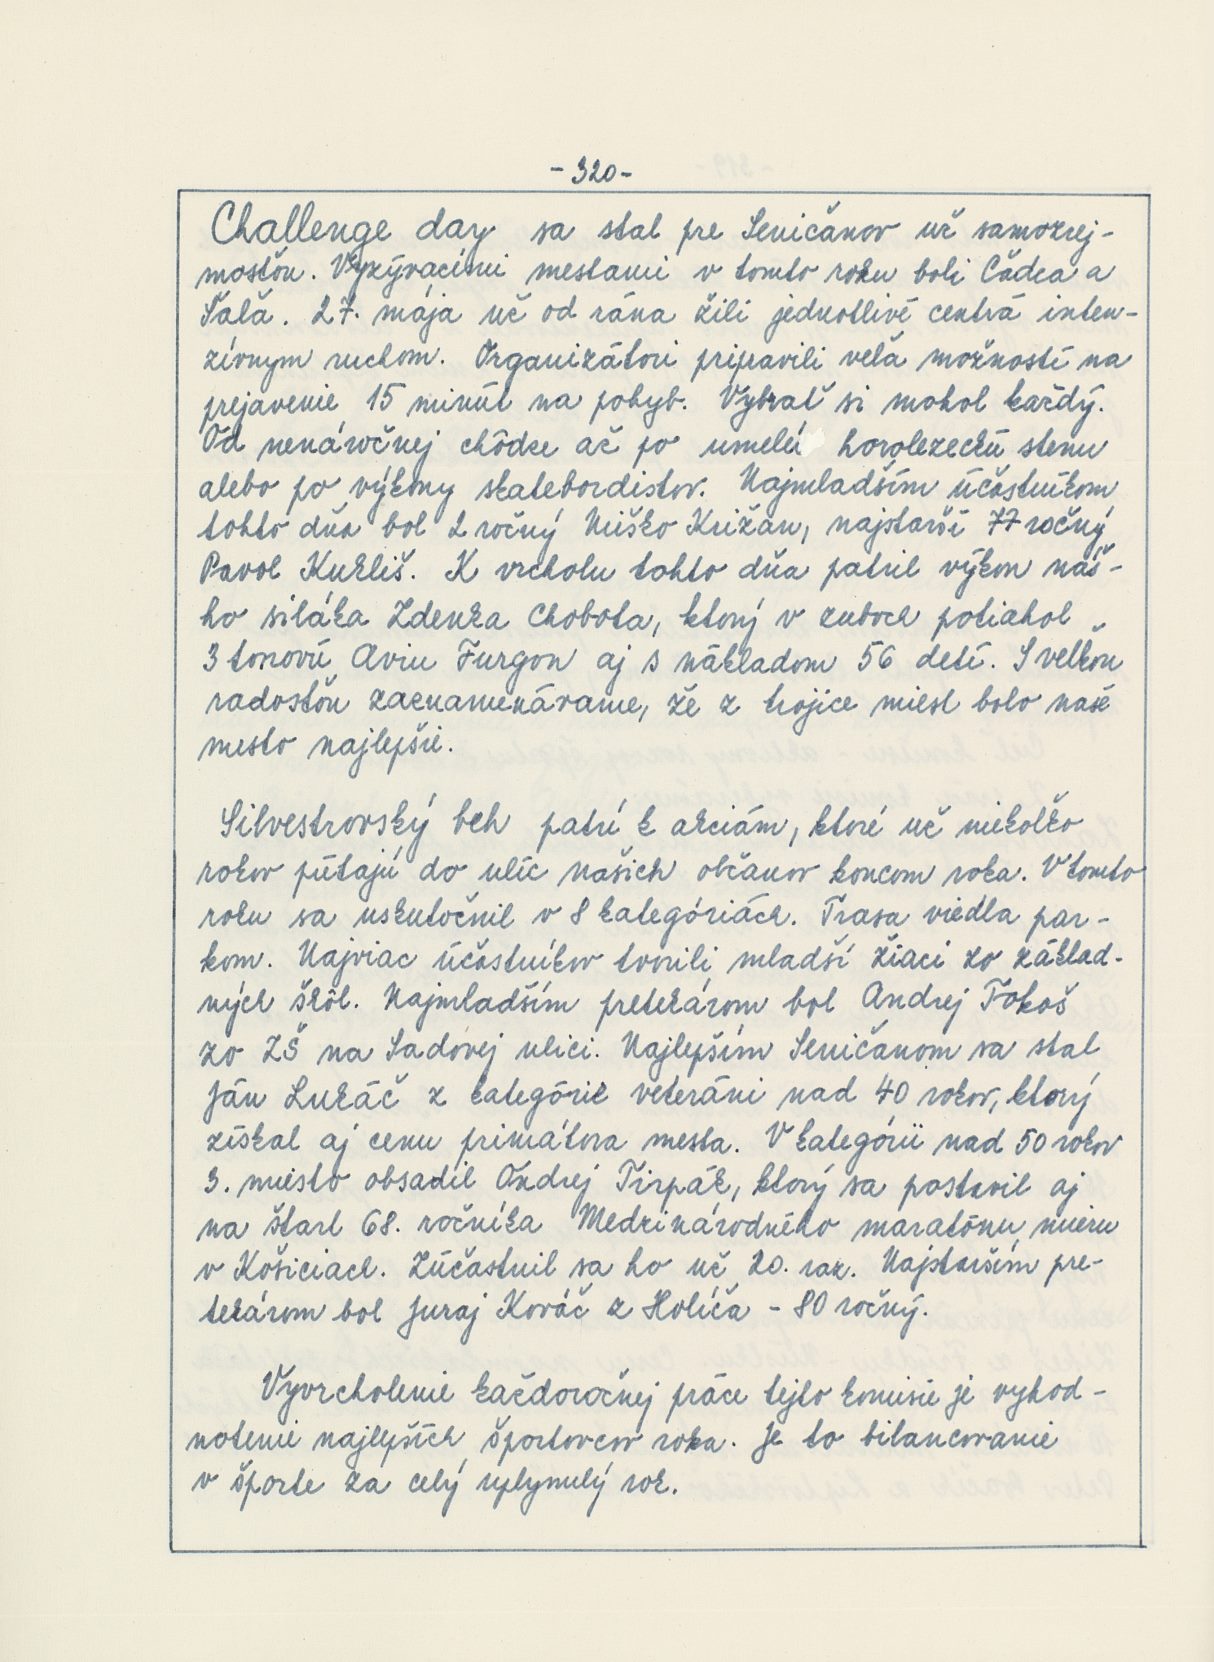 - 320 -
Challenge day sa stal pre Seničanov už samozrej-
mosťou. Vyzývacími mestami v tomto roku boli Čadca a
Šaľa. 27. mája už od rána žili jednotlivé centrá inten-
zívnym ruchom. Organizátori pripravili veľa možností na
prejavenie 15 minút na pohyb. Vybrať si mohol každý.
Od nenáročnej chôdze až po umelú horolezeckú stenu
alebo po výkony skatebordistov. Najmladším účastníkom
tohto dňa bol 2 ročný Miško Križan, najstarší 77 ročný
Pavol Kukliš. K vrcholu tohto dňa patril výkon náš-
ho siláka Zdenka Chobota, ktorý v zuboch potiahol
3 tonovú Aviu Furgon aj s nákladom 56 detí. S veľkou
radosťou zaznamenávame, že z trojice miest bolo naše
mesto najlepšie.
Silvestrovský beh patrí k akciám, ktoré už niekoľko
rokov pútajú do ulíc našich občanov koncom roka. V tomto
roku sa uskutočnil v 8 kategóriách. Trasa viedla par-
kom. Najviac účastníkov tvorili mladší žiaci zo základ-
ných škôl. Najmladším pretekárom bol Andrej Fokoš
zo ZŠ na Sadovej ulici. Najlepším Seničanom sa stal
Ján Lukáč z kategórie veteráni nad 40 rokov, ktorý
získal aj cenu primátora mesta. V kategórii nad 50 rokov
3. miesto obsadil Ondrej Tirpák, ktorý sa postavil aj
na štart 68. ročníka Medzinárodného maratónu mieru
v Košiciach. Zúčastnil sa ho už 20. raz. Najstarším pre-
tekárom bol Juraj Kováč z Holíča - 80 ročný.
Vyvrcholenie každoročnej práce tejto komisie je vyhod-
notenie najlepších športovcov roka. Je to bilancovanie
v športe za celý uplynulý rok.